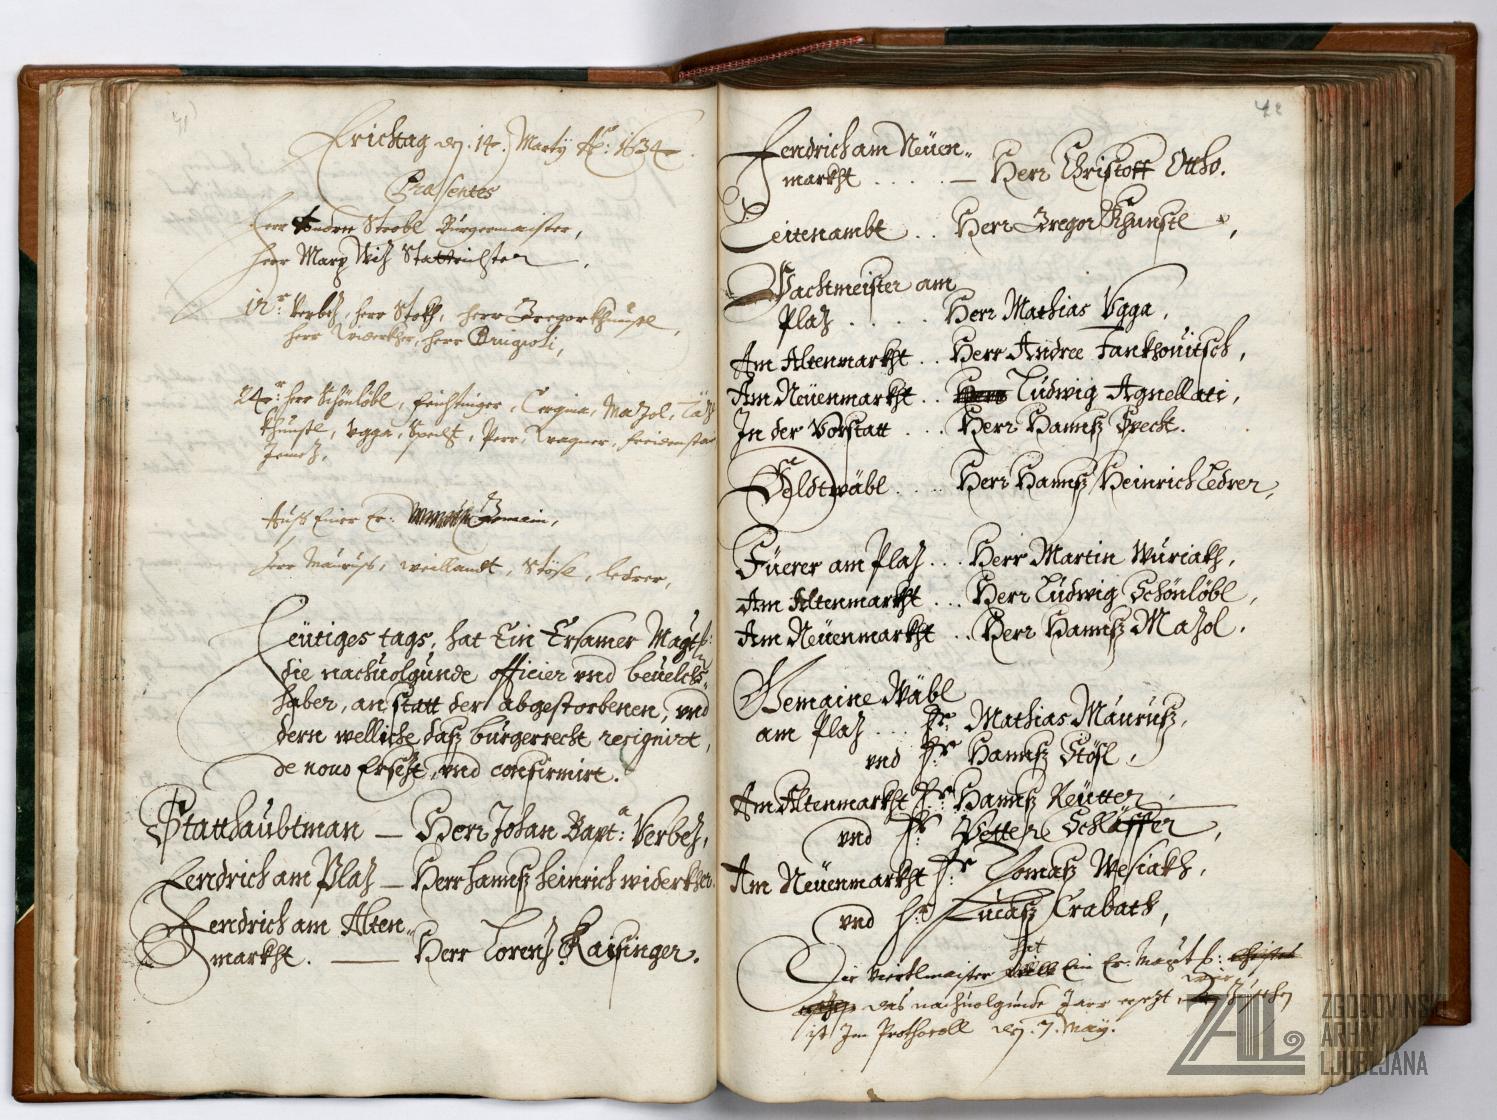 41
Erichtag den 14. Martÿ Ao: 1634.
Præsentes
Herr Andre Strobl Burgermaister,
Herr Marx Wiz Stattrichter,
12r: Verbez, herr Stokh, herr Gregor Khunstl,
herr Widerkher, herr Brugioli,
24r: herr Schönlöbl, Feichtinger, Mazol,
Khunstl, Vgga, Specht, Wagner,
Auss Einer Er: Gemein,
Herr Mauruss, Weillandt, Stösl, Ledrer,
Heütiges tags, hat Ein Ersamer Magt:
die nachuolgunde officier vnd beuelchs„
haber, an statt der abgestorbenen, vnd
dern welliche dass burgerrecht resignirt,
de nouo Ersezt, vnd confirmirt.
Statthaubtman — Herr Johan Bapta: Verbez,
Fendrich am Plaz — Herr Hannss Heinrich Widerkher
Fendrich am Alten„
markht. — Herr Lorenz Raisinger.
42
Fendrich am Neüen„
markht ..... — Herr Christoff Otto.
Leitenambt .. Herr Gregor Khunstl,
Wachtmeister am
Plaz ..... Herr Mathias Vgga,
Am Altenmarkht .. Herr Andree Jankhouitsch,
Am Neüenmarkht .. Ludwig Agnellati,
In der Vorstatt ... Herr Hannss Specht.
Feldtwäbl .... Herr Hannss Heinrich Ledrer,
Füerer am Plaz ... Herr Martin Wuriakh,
Am Altenmarkht ... Herr Ludwig Schönlöbl,
Am Neüenmarkht .. Herr Hannss Mazol.
Gemaine Wäbl
am Plaz .... Hr: Mathias Mauruss,
vnd Hr: Hannss Stösl,
Am Altenmarkht Hr: Hannss Reütter
vnd Hr: Schläffer,
Am Neüenmarkht Hr: Tomass Wesiakh,
vnd Hr: Lucass Crabath,
hat
Die Viertlmaister Ein Er: Magt:
das nachuolgunde Jarr ersezt,
ist Im Prothocoll den 7. May.
ZAL
ZGODOVINSKI
ARHIV
LJUBLJANA